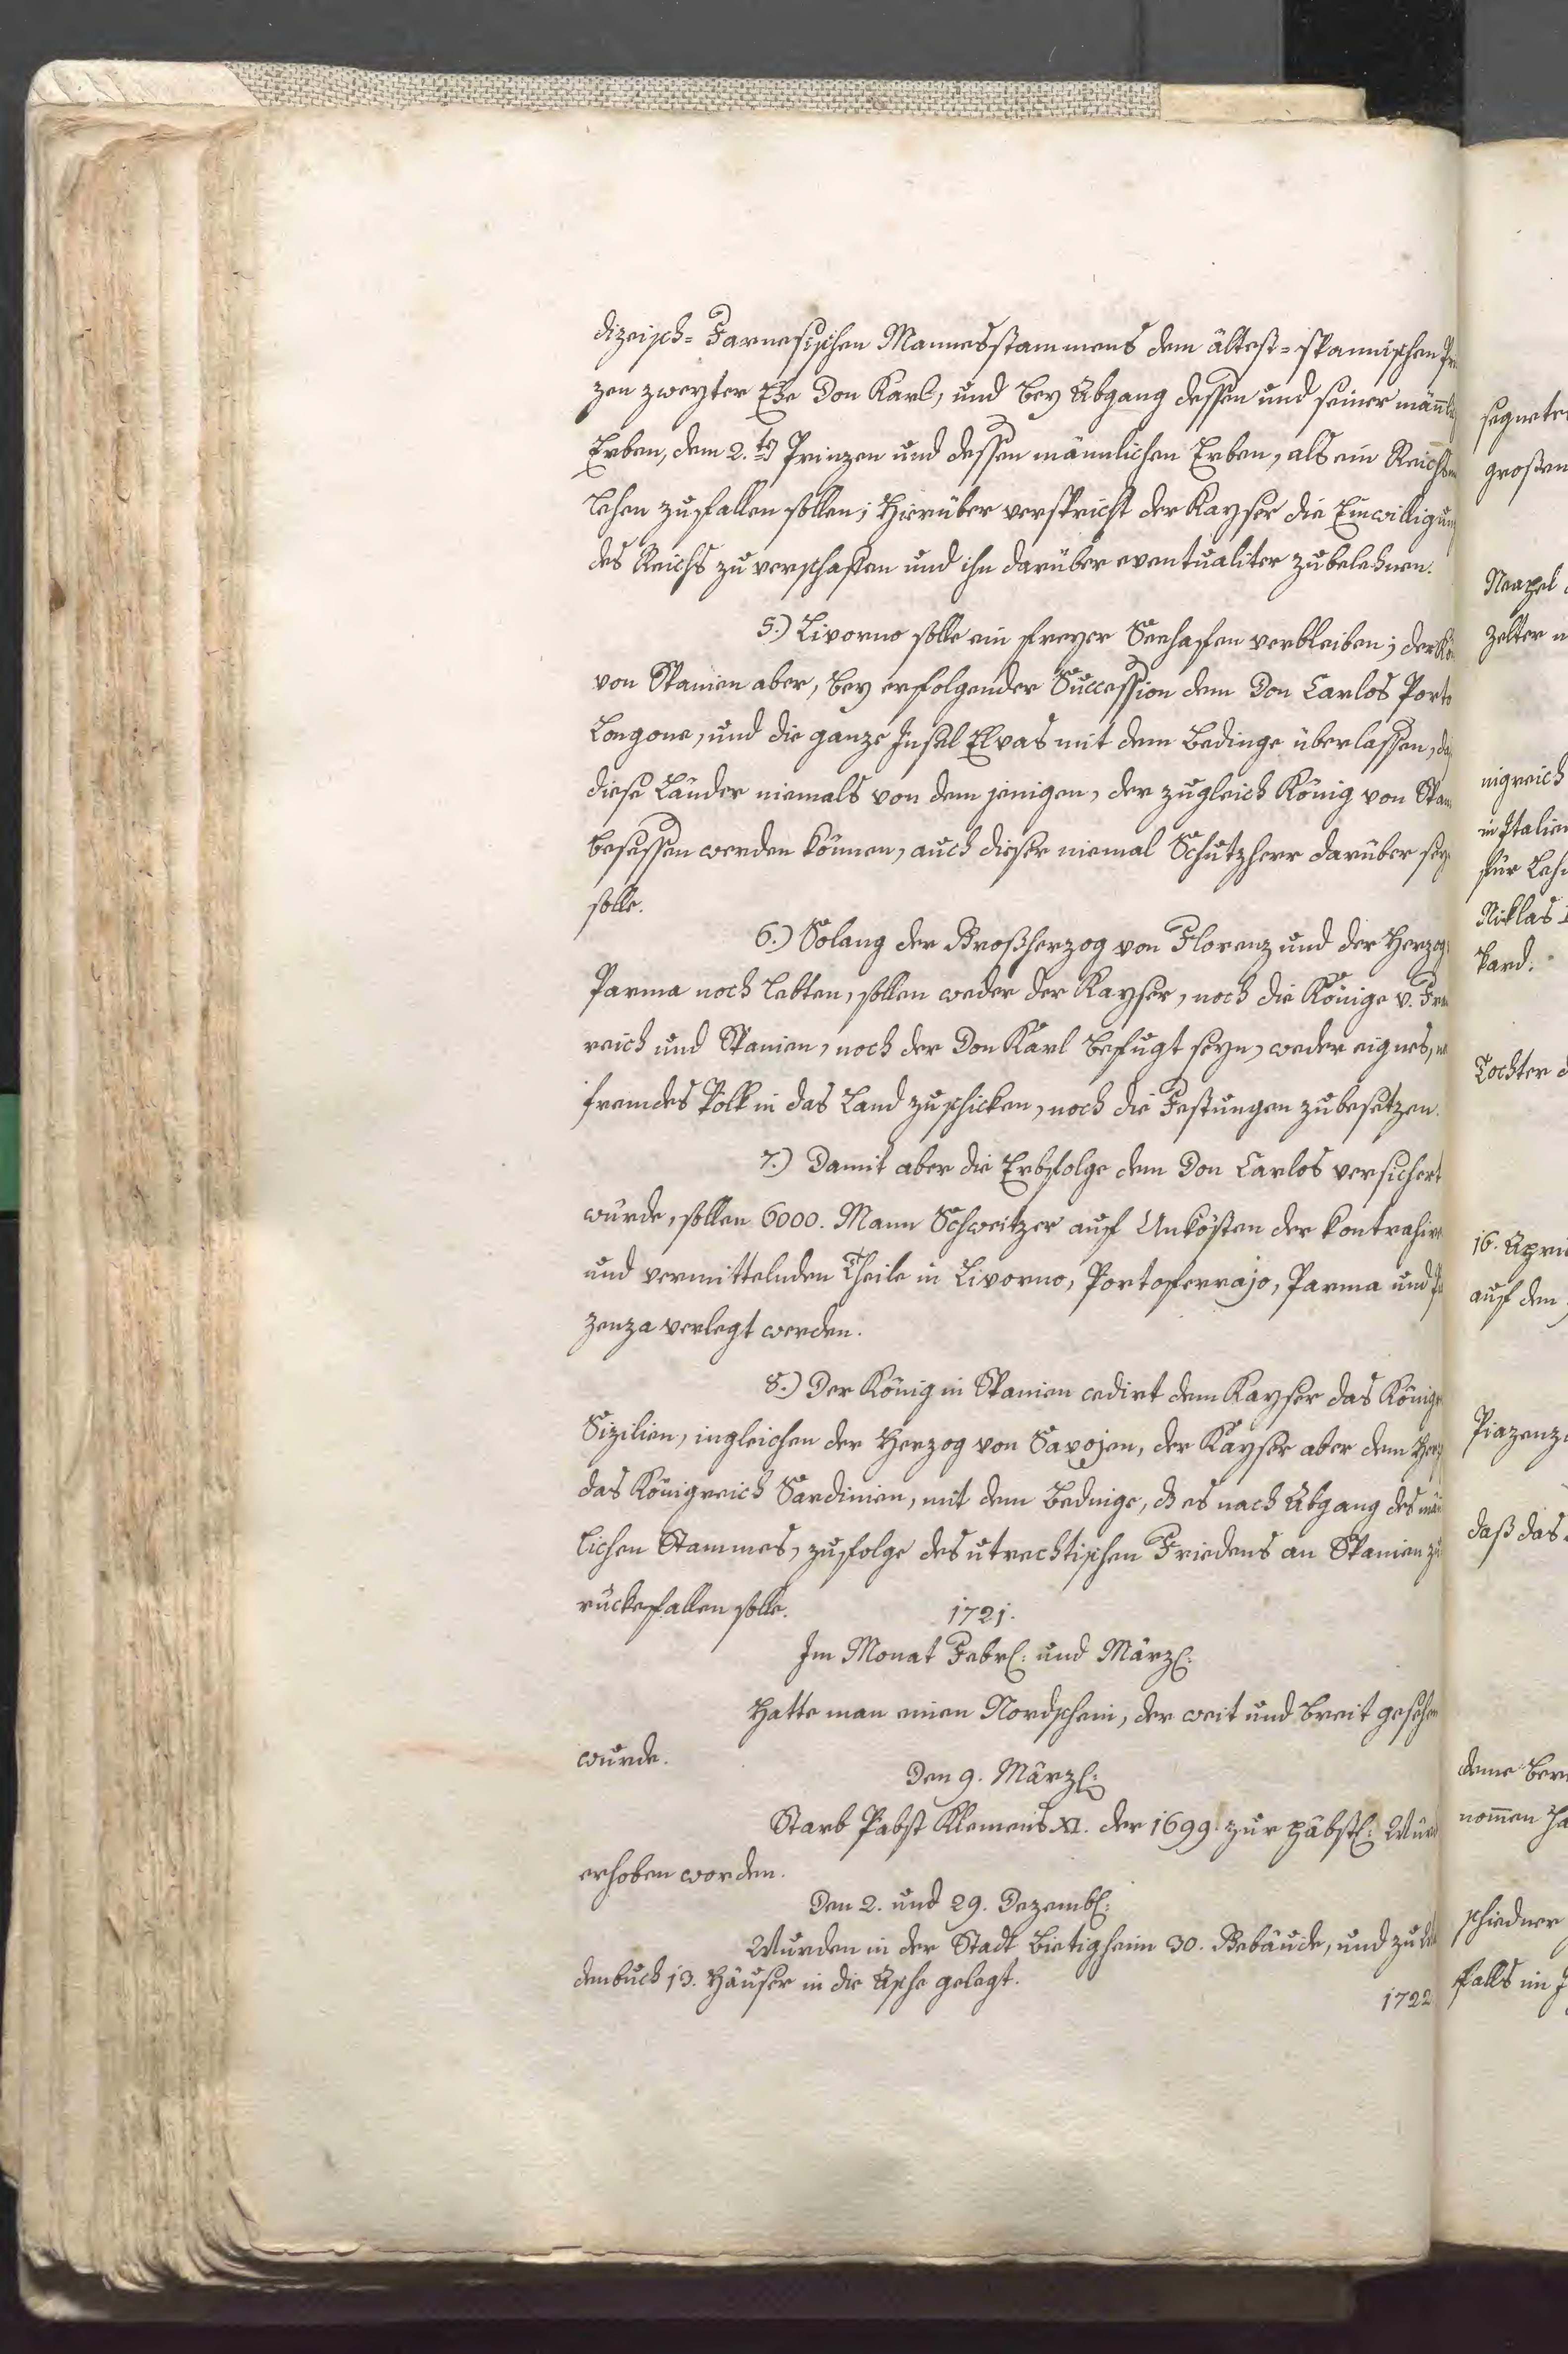 dizeisch= Farnesischen Mannesstammens dem ältest=spannischen
zen zweyter Ehe Don Karl, und bey Abgang dessen und seiner
Erben, dem 2.ten Prinzen und dessen männlichen Erben, als ein Reichs
lehen zufallen sollen; Hierüber verspricht der Kayser die Einwilligun
des Reichs zu verschaffen und ihn darüber eventualiter zubelehnen.
5.) Livorno solle ein freyer Seehafen verbleiben; der Kö
von Spanien aber, bey erfolgender Succession dem Don Carlos Porto
Longone, und die ganze Insel Elvas mit dem Bedinge überlassen, da
diese Länder niemals von dem jenigen, der zugleich König von Span
besessen werden können, auch dieser niemal Schutzherr darüber sey
solle.
6.) Solang der Großherzog von Florenz und der Herzog
Parma noch lebten, sollen weder der Kayser, noch die Könige v. Fra
reich und Spanien, noch der Don Karl befugt seyn, weder eignes, no
fremdes Volk in das Land zuschicken, noch die Festungen zubesetzen.
7.) Damit aber die Erbfolge dem Don Carlos versichert
würde, sollen 6000. Mann Schweitzer auf Unkösten der kontrahire
und vermittelnden Theile in Livorno, Portoferrajo, Parma und
zenza verlegt werden.
8.) Der König in Spanien cedirt dem Kayser das König
Sizilien, ingleichen der Herzog von Savojen, der Kayser aber dem Herz
das Königreich Sardinien, mit dem Bedinge, dß es nach Abgang des män
lichen Stammes, zufolge des utrechtischen Friedens an Spanien zu
rückefallen solle.
1721.
Im Monat Febr: und März:
Hatte man einen Nordschein, der weit und breit gesehen
wurde.
Den 9. März:
Starb Pabst Klemens XI. der 1699. zur päbstl: Würd
erhoben worden.
Den 2. und 29. Dezemb:
Wurden in der Stadt Bietigheim 30. Gebäude, und zu
denbuch 13. Häuser in die Asche gelegt.
1722
segnete
großen
Neapel
zelter
nigreich
in Italien
für Lehe
Niklas
kard:
Tochter d
16. April
auf den
Piazenza
daß das
deme Ber
nomen ha
schiedner
falls im J